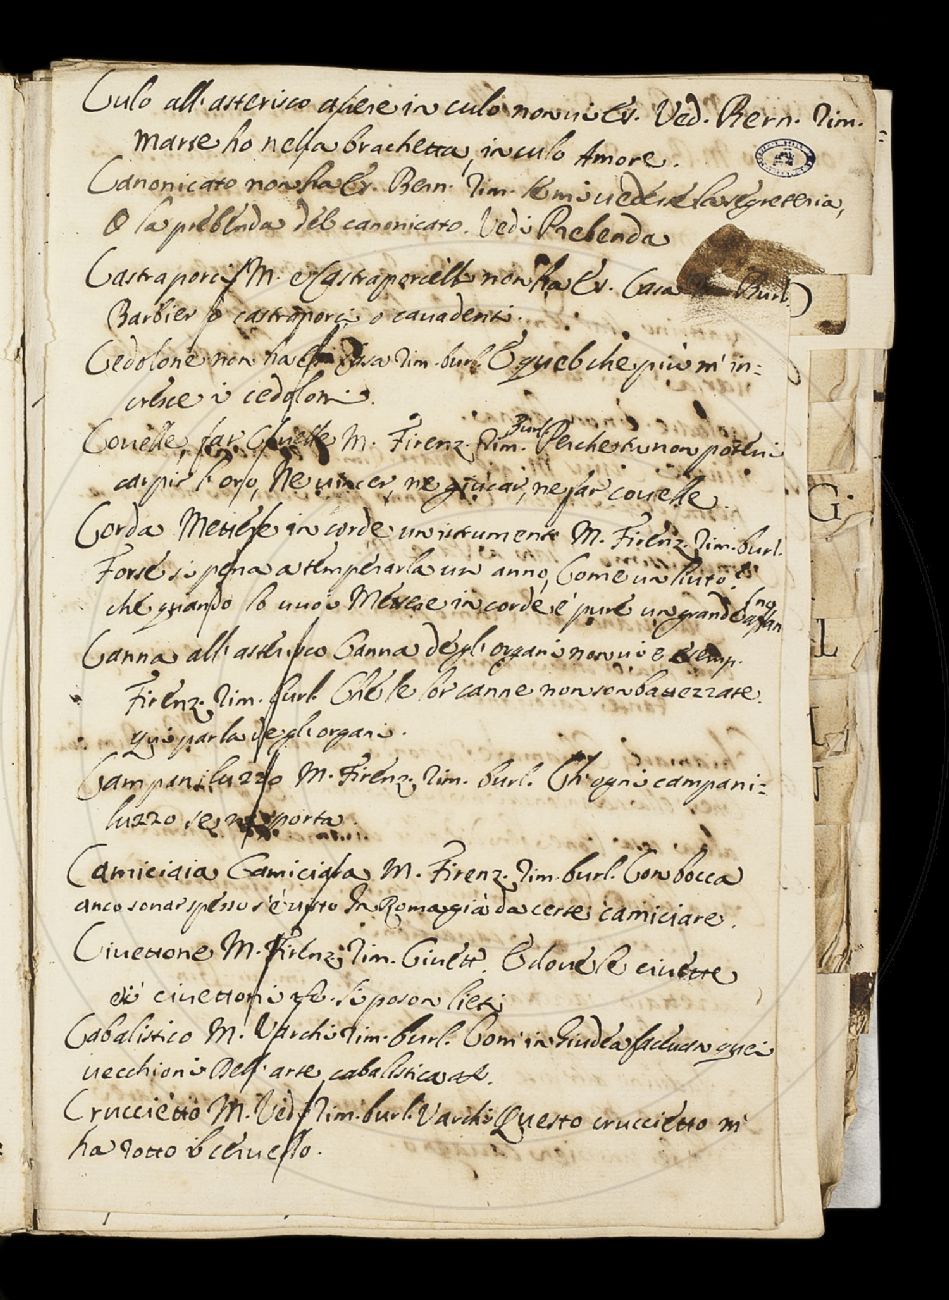 Culo all'asterisco avere in culo non vi Es. Ved. Bern. Rim.
Marte ho nella brachetta, in culo Amore.
Canonicato non ha Es. Bern. Rim. le mi vedere la segreteria,
E la prebenda del canonicato. Vedi Prebenda
Castraporci M. e Castraporcelli non ha Es. Casa Rim Burl.
Barbier o castraporci o cavadenti.
Cedolone non ha Rim. burl. E quel che più m'in=
cresce i cedoloni.
Covelle, far Covelle M. Firenz. Rim. Burl. Perche tu non potevi
carpir l'orso, Ne vincer, ne giucar, ne far covelle.
Corda Mettere in corde un istrumento M. Firenz. Rim. burl.
Forse si pena a temperarla un anno, Come un liuto
che quando lo vuoi Mettere in corde è pure un grande affanno
Canna all'asterisco Canna degli organi non vi è esemp.
Firenz. Rim. burl. Che le lor canne non son battezzate.
qui parla degli organi.
Campaniluzzo M. Firenz. Rim. burl. Ch'ogni campani=
luzzo se ne porta.
Camiciaia Camiciara M. Firenz. Rim. burl. Con bocca
anco sonar spesso s'è visto In Roma già da certe camiciare.
Civettone M. Firenz. Rim. Civett. E dove le civette
e i civettoni si poson lieti
Cabalistico M. Varchi Rim. burl. Com'in Giudea facevan quei
vecchioni Dell'arte cabalistica
Cruccietto M. Ved. Rim. burl. Varchi Questo cruccietto m'
ha rotto il cervello.
G
L
N